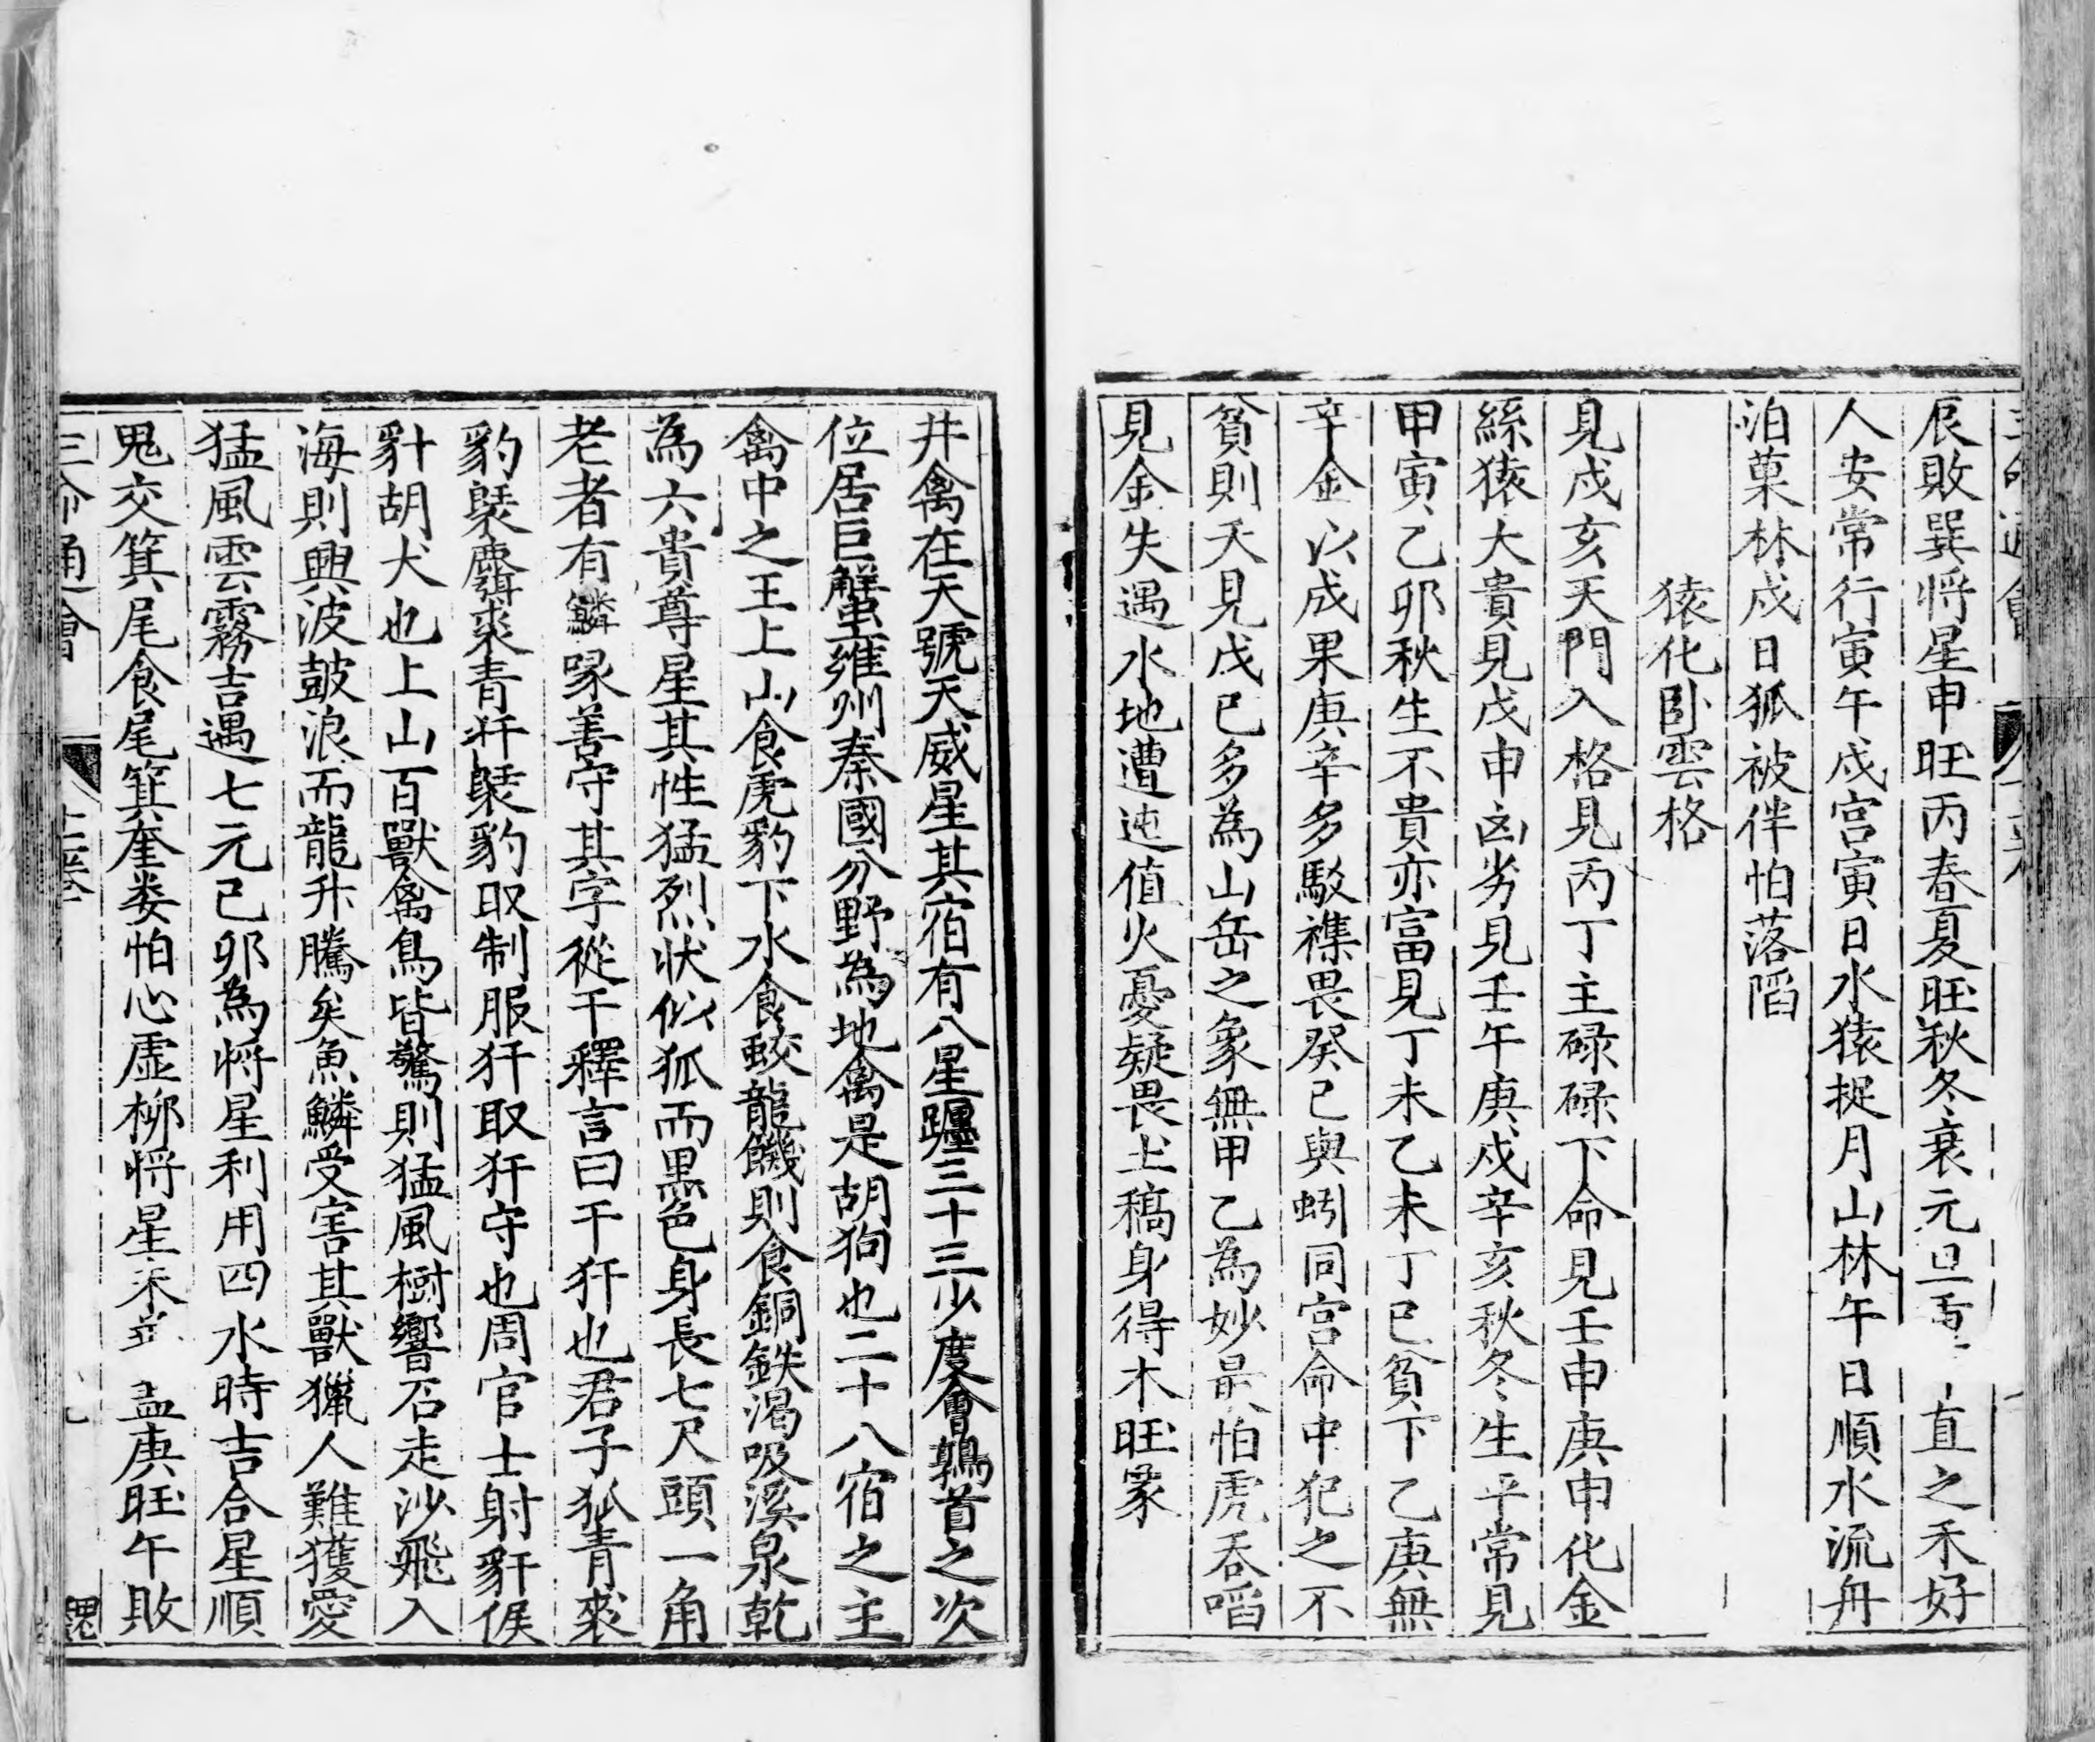 辰敗巽将星申旺丙春夏旺秋冬衰元旦 直之禾好
人安常行寅午戍宫寅日水猿捉月山林午日順水流舟
泊菓林戍日狐被伴怕落䧟
猿化卧雲格
見戍亥天門入格見丙丁主碌碌下命見壬申庚申化金
絲猿大貴見戊申凶劣見壬午庚戍辛亥秋冬生平常見
甲寅乙卯秋生不貴亦富見丁未乙未丁巳貧下乙庚無
辛金以成果庚辛多駁襍畏癸已與蚓同宫命中犯之不
貧則夭見戊已多為山岳之象無甲乙為妙最怕虎吞啗
見金失遇水地遭迍值火憂疑畏土稿身得木旺䝉
井禽在天號天威星其宿有八星躔三十三少度會鶉首之次
位居巨蟹雍州秦國分野為地禽是胡狗也二十八宿之主
禽中之王上山食虎豹下水食蛟龍饑則食銅鉄渴吸溪泉乾
為六貴尊星其性猛烈状似狐而黒色身長七尺頭一角
老者有鱗㒸善守其字從干釋言曰干犴也君子狐青裘
豹褎麛裘青犴褎豹取制服犴取犴守也周官士射豻侯
豻胡犬也上山百獸禽鳥皆驚則猛風樹響石走沙飛入
海則興波鼓浪而龍升騰矣魚鱗受害其獸獵人難獲愛
猛風雲霧吉遇七元已卯為将星利用四水時吉合星順
鬼交箕尾食尾箕奎娄怕心虚柳将星未 孟庚旺午敗
三命通會